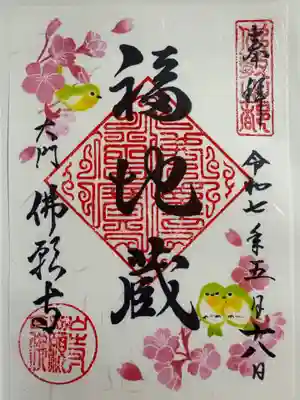 奉拝
令和七年五月十八日
福地蔵
大門 佛願寺